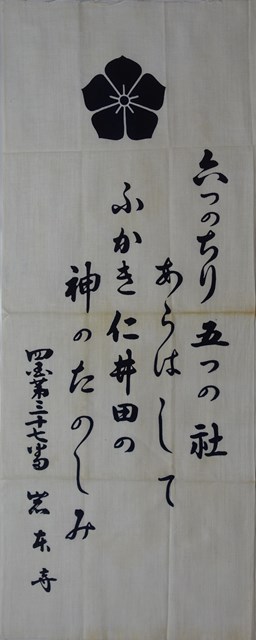 六つのちり五つの社
あらはして
ふかき仁井田の
神のたのしみ
四国第三十七番 岩本寺